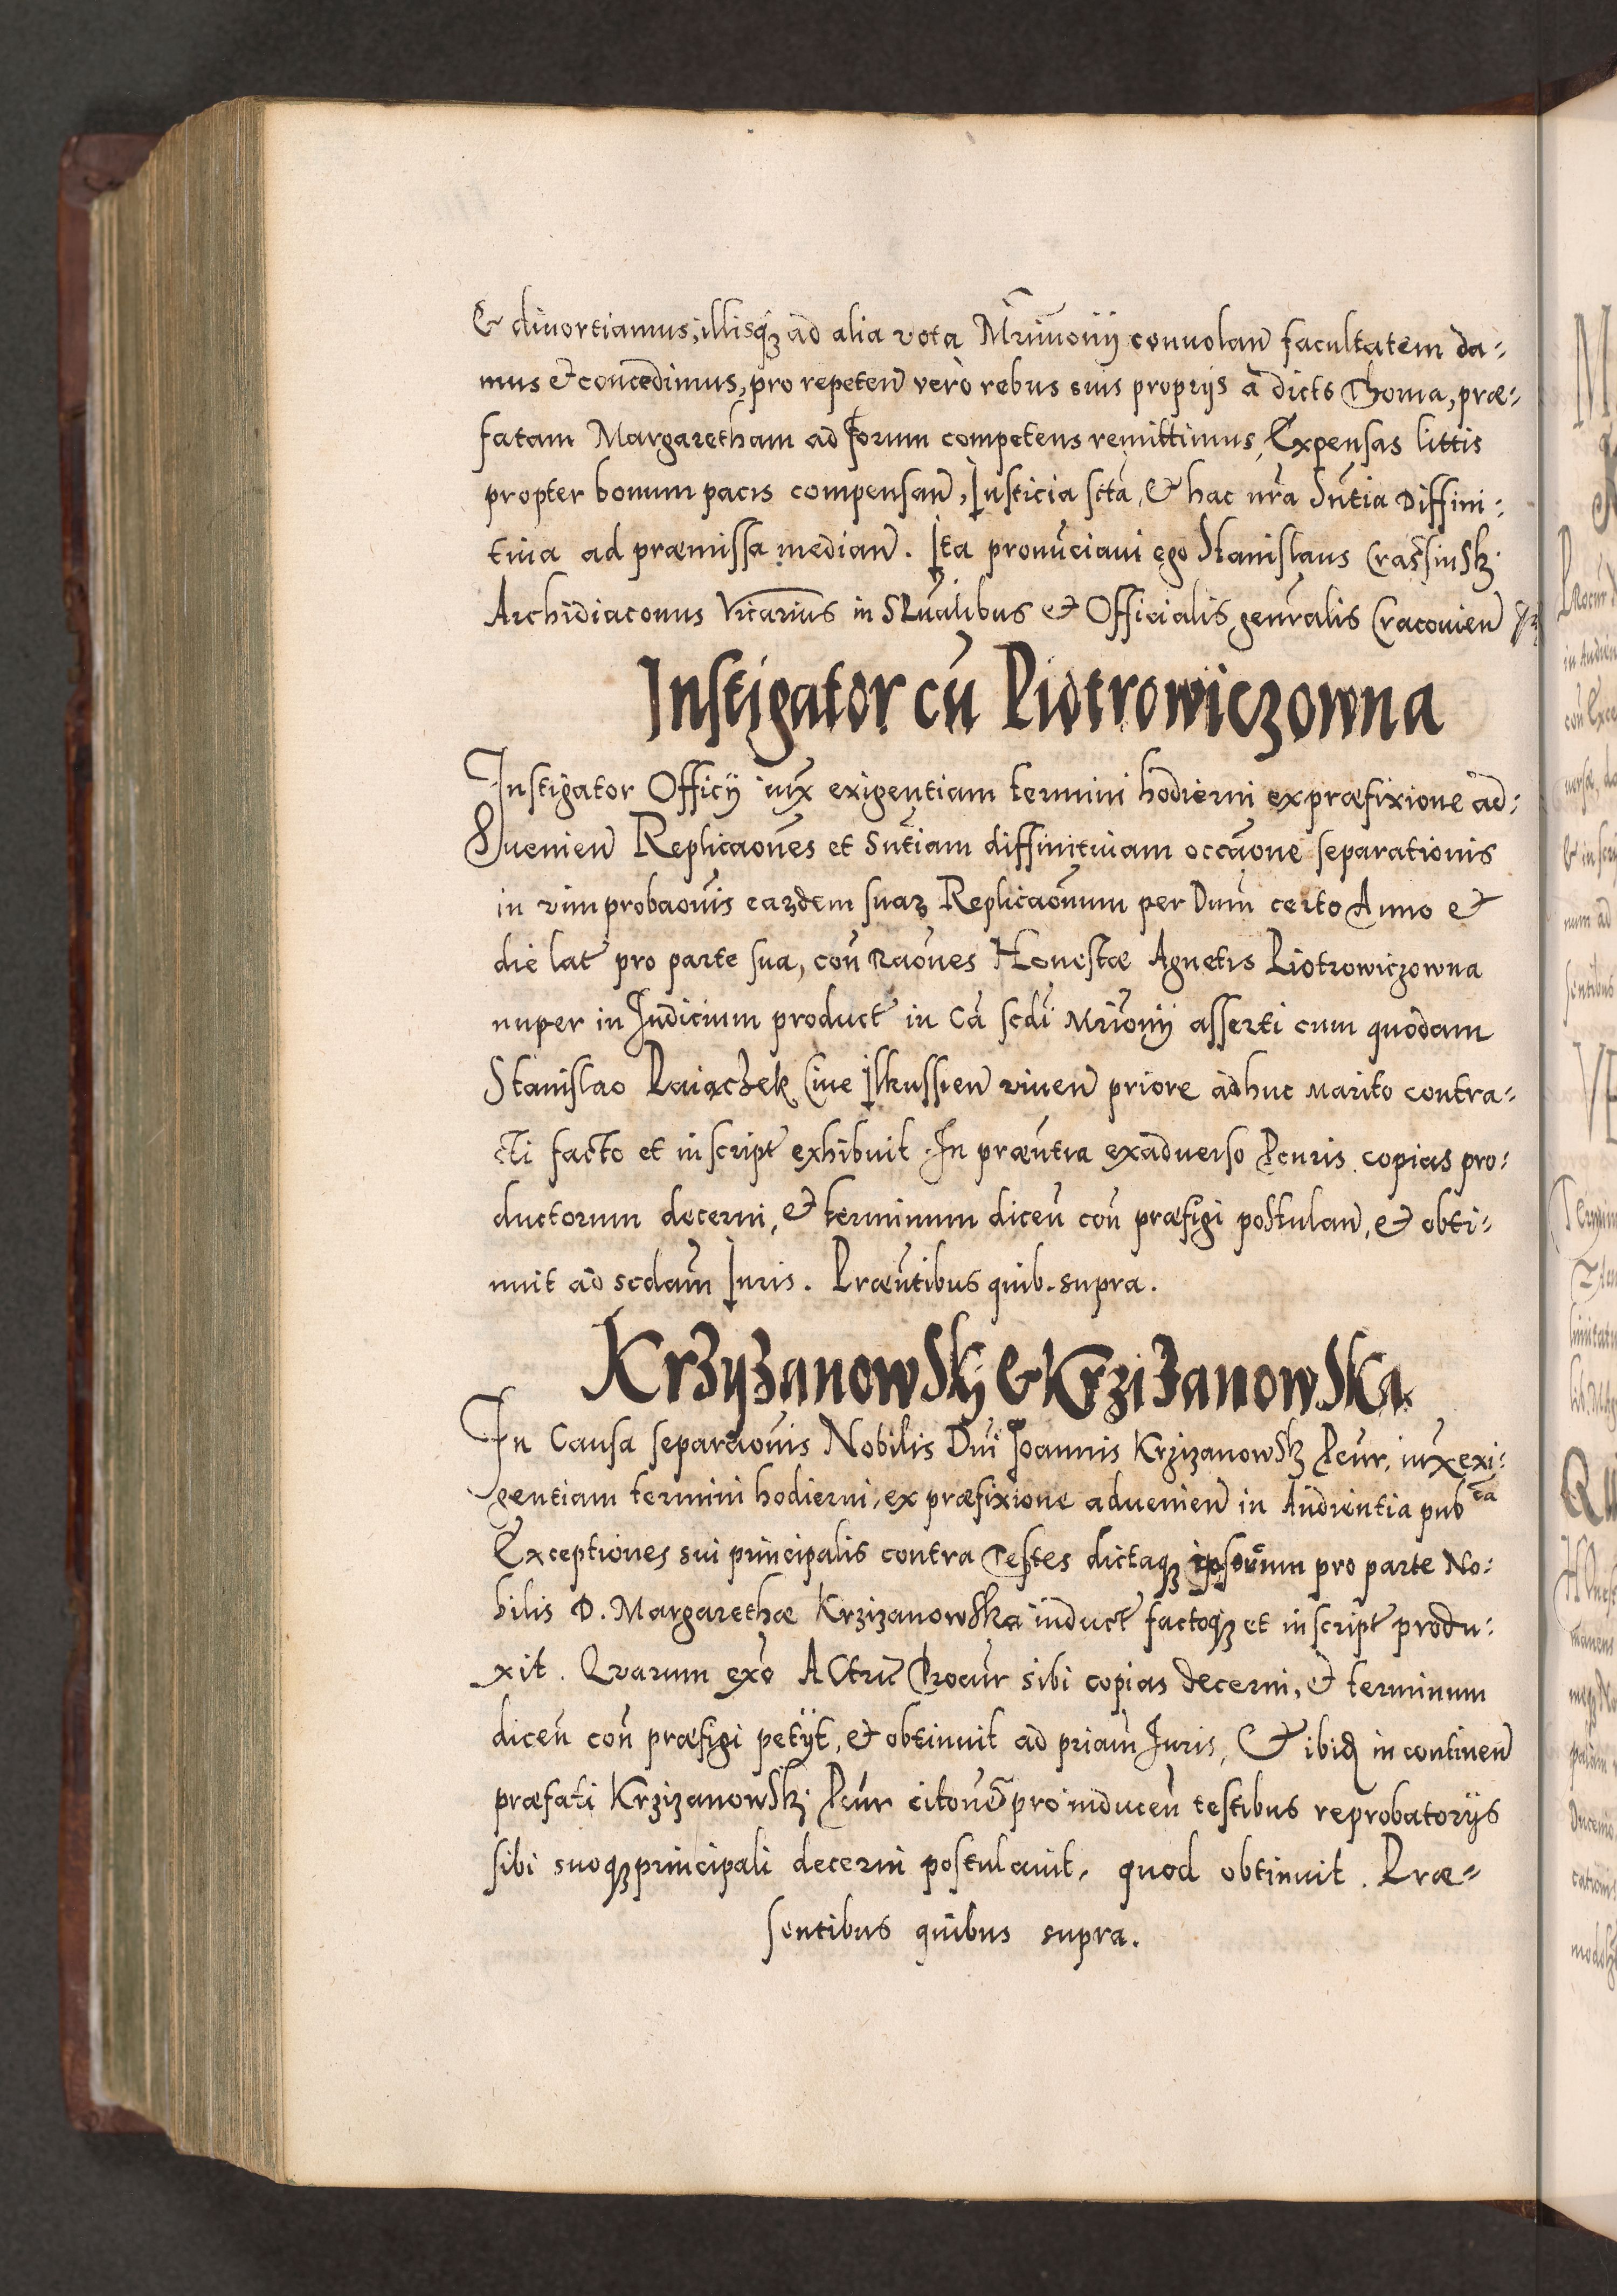 & diuortiamus, illisq₃ ad alia vota Mrimonij conuolan̄ facultatem da-
mus et concedimus, pro repeten̄ vero rebus suis proprijs a dicto Thoma, præ-
fatam Margaretham ad forum competens remittimus, Expensas littis
propter bonum pacis compensan̄, Iusticia scta, & hac nr̄a Sn̄tia Diffini-
tiua ad præmissa median̄. Ita pronūciaui ego Stanislaus Crassinsk₃
Archidiaconus Vicarius in Sp̄ualibus et Officialis gen̄ralis Cracouien̄
Instigator cū Piotrowiczowna
Instigator Officij iux̄ exigentiam termini hodierni ex præfixione ad-
uenien̄ Replicaōnes et Sn̄tiam diffinitiuam occāone separationis
in vim probaōnis eaɀdem suaɀ Replicaōnum per Dnūm certo Anno et
die lat̄ pro parte sua, con̄ raōnes Honestæ Agnetis Piotrowiczowna
nuper in Iudicium product̄ in cā scdi Mrīonij asserti cum quodam
Stanislao Paiączek Ciue Ilkussien̄ viuen̄ priore adhuc marito contra-
cti facto et in script̄ exhibuit. In præn̄tia exaduerso Pcuris copias pro-
ductorum decerni, & terminum dicen̄ con̄ præfigi postulan̄, & obti-
nuit ad scdam̄ Iuris. Præn̄tibus quib. supra.
Krzyzanowskj & Krzizanowska
In Causa separaōnis Nobilis Dn̄i Joannis Krzizanowsk₃ Pcur̄, iux̄ exi-
gentiam termini hodierni, ex præfixione aduenien̄ in Audientia pub^ca
Exceptiones sui principalis contra Testes dictaq₃ ipsorum pro parte No-
bilis D. Margarethæ Krzizanowska induct̄ factoq₃ et in script̄ produ-
xit. Quarum exō Actrīc Procur̄ sibi copias decerni, et terminum
dicen̄ con̄ præfigi petijt, et obtinuit ad priam̄ Iuris, Et ibid̄ in continen̄
præfati Krzizanowsk₃ Pcur̄ citōnē pro inducen̄ testibus reprobatorijs
sibi suoq₃ principali decerni postulauit, quod obtinuit. Præ-
sentibus quibus supra.